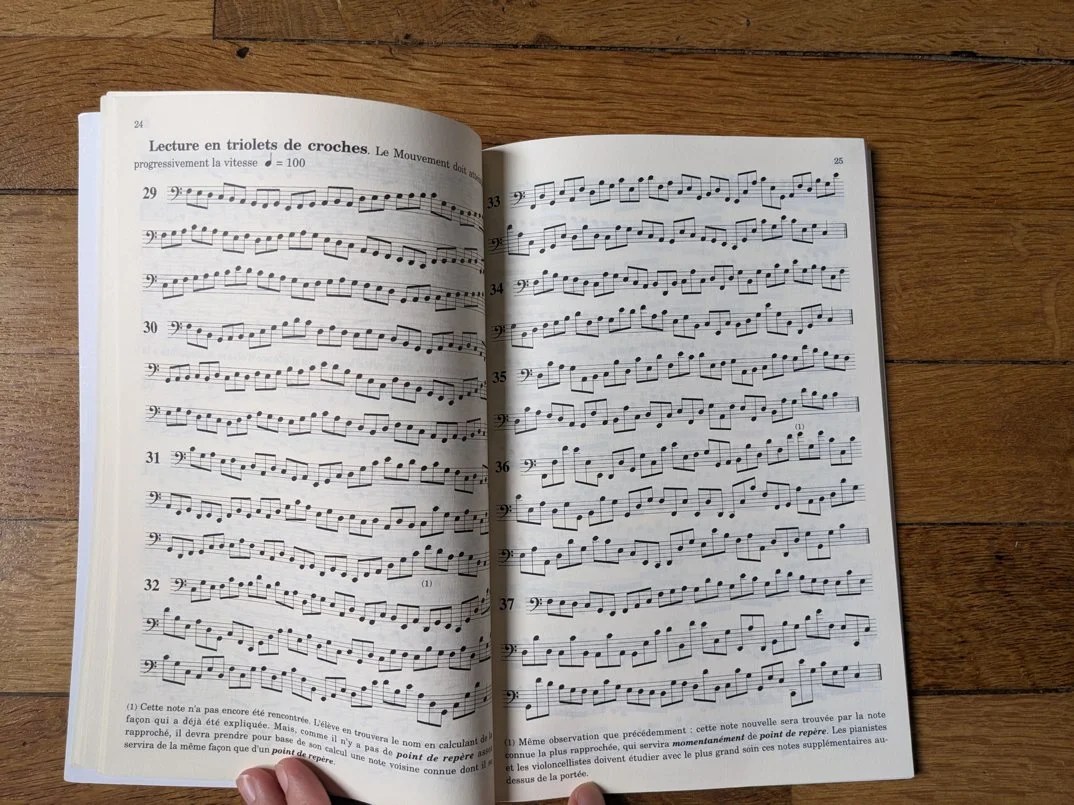 24
Lecture en triolets de croches. Le Mouvement doit
progressivement la vitesse = 100
29
30
31
(1)
32
(1) Cette note n'a pas encore été rencontrée. L'élève en trouvera le nom en calculant de la
façon qui a déjà été expliquée. Mais, comme il n'y a pas de point de repère
rapproché, il devra prendre pour base de son calcul une note voisine connue dont il
servira de la même façon que d'un point de repère.
25
33
34
35
(1)
36
37
(1) Même observation que précédemment ; cette note nouvelle sera trouvée par la note
connue la plus rapprochée, qui servira momentanément de point de repère. Les pianistes
et les violoncellistes doivent étudier avec le plus grand soin ces notes supplémentaires au-
dessus de la portée.